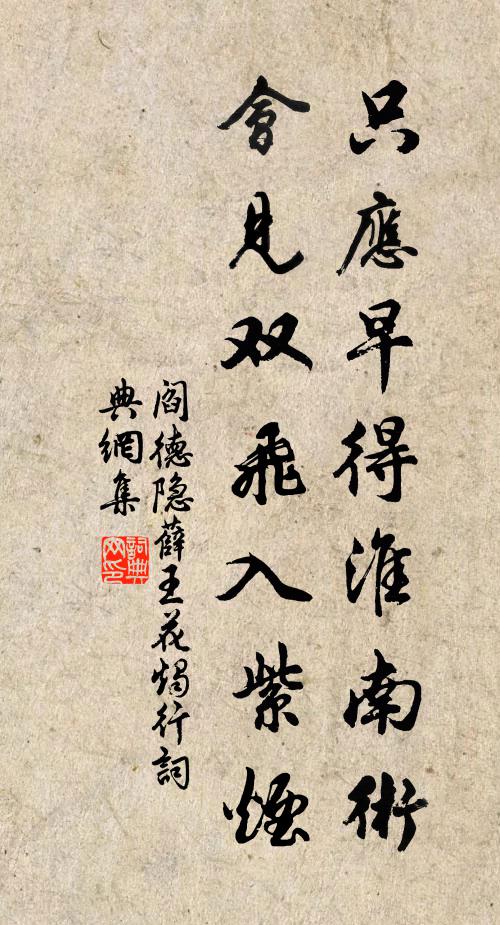 只應早得淮南術
會見双飛入紫煙
閻德隐薛王花燭行詞
典網集
詞典
网印